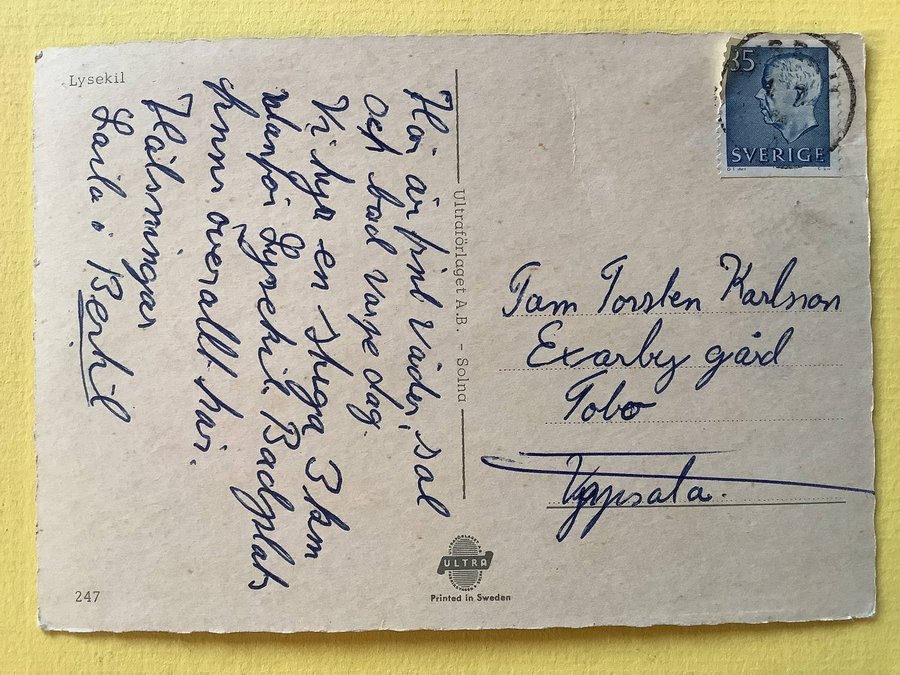 Lysekil
Här är fint väder, sol
och bad varje dag.
Vi hyr en stuga 3 km
utanför Lysekil Badplats
finns överallt här.
Hälsningar
Laila o Bertil
Ultraförlaget A.B. - Solna
35
SVERIGE
Fam Torsten Karlsson
Exarby gård
Tobo
Uppsala.
ULTRA
Printed in Sweden
247